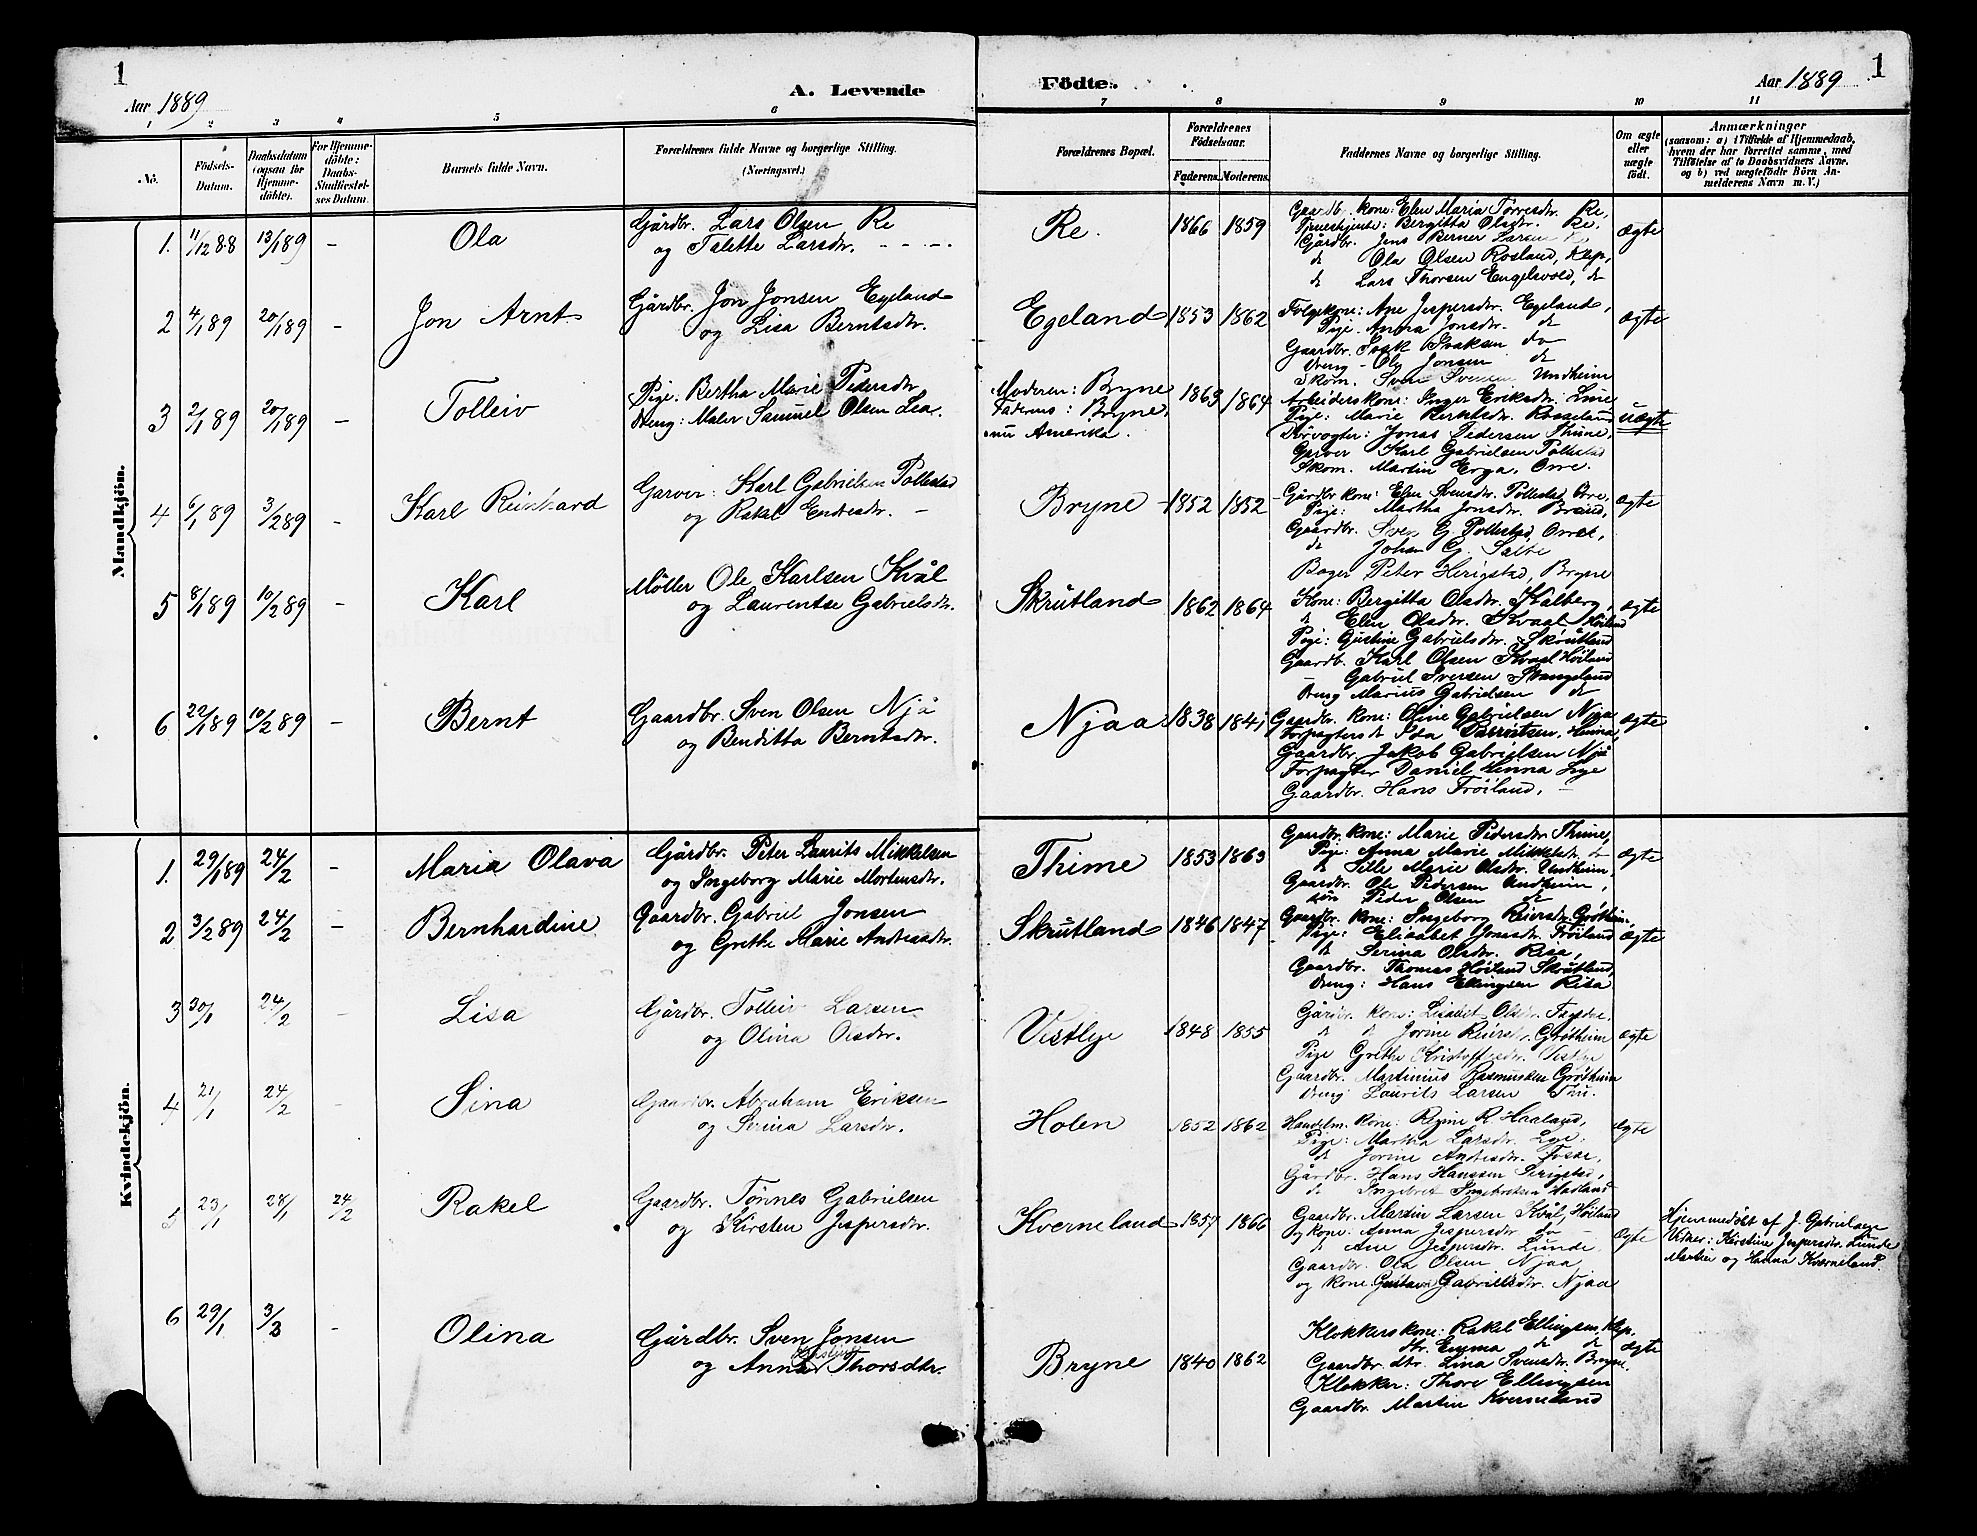 1
Aar 1889
A. Levende
Födte.
Aar 1889
1
1 2 3 4 5 6 7 8 9 10 11
No.
Födsels-Datum.
Daabsdatum (ogsaa for Hjemmedöbte).
For Hjemmedöbte: Daabs-Stadfæstelses Datum.
Barnets fulde Navn.
Forældrenes fulde Navne og borgerlige Stilling.
(Næringsvei.)
Forældrenes Bopæl.
Forældrenes Födselsaar.
Faderens. Moderens.
Faddernes Navne og borgerlige Stilling.
Om ægte eller uægte födt.
Anmærkninger
(saasom: a) i Tilfælde af Hjemmedaab, hvem der har forrettet samme, med Tilföielse af to Daabsvidners Navne. og b) ved uægtefödte Börn Anmelderens Navn m. V.)
Mandkjön.
1. 11/12 88 13/1 89 - Ola
Gårdbr. Lars Olsen Re
og Talette Larsdtr.
Re. 1866 1859
Gaardb. kone: Elen Maria Torresdtr. Re,
Bergitta Olsdtr. Re.
Gårdbr. Jens Berner Larsen
do Ola Olsen Rosland, Klep,
do Lars Thorsen Engelsvold, do
ægte
2 4/1 89 20/1 89 - Jon Arnt
Gårdbr. Jon Jonsen Egeland
og Lisa Berntsdtr.
Egeland 1853 1862
Folgekone: Ane Jespersdtr. Egeland,
Pige. Anna Jonsdtr. do
Gaardbr. Isak Isaksen do
Dreng - Ole Jonsen do
Skom. Sven Svensen Undheim
ægte
3 2/1 89 20/1 89 - Tolleiv
Pige. Bertha Marie Pedersdtr
Dreng: Maler Samuel Olsen Lea.
Moderen: Bryne
Faderens: Bryne,
nu Amerika.
1863 1864
Arbeiderskone: Inger Eriksdtr. Line
Pige: Marie Berntsdtr. Rosseland
Jonas Pedersen Thime,
Garver Karl Gabrielsen Pollestad
Skom. Martin Erga, Orre.
uægte
4 6/1 89 3/2 89 - Karl Reinhard
Garver: Karl Gabrielsen Pollestad
og Rakel Endresdtr. -
Bryne 1852 1852
Gårdbr kone: Elen Svensdtr. Pollestad Orre,
Pige: Martha Jonsdtr. Braud,
Gaardbr. Sven G Pollestad, Orre,
do Johan G. Salte
Bager Peter Herigstad, Bryne
ægte
5 8/1 89 10/2 89 - Karl
Møller Ole Karlsen Kvål
og Laurentse Gabrielsdtr.
Skrutland 1862 1864
Kone: Bergitta Olsdtr. Kalberg,
do Elen Olsdtr. Kvaal Høiland
Pige: Gustine Gabrielsdtr. Skrutland
Gaardb. Karl Olsen Kvaal Høiland
Gabriel Iversen Stangeland
Dreng Marius Gabrielsen do
ægte
6 22/1 89 10/2 89 - Bernt
Gaardbr. Sven Olsen Njå
og Benditta Berntsdtr.
Njaa 1838 1841
Gaardbr. kone: Oline Gabrielsen Njaa
Forpagters do Ida Hinna,
Gaardbr. Jakob Gabrielsen Njå
Forpagter Daniel Hinna Lye
Gaardbr. Hans Frøiland,
ægte
Kvindekjön.
1. 29/1 89 24/2 - Maria Olava
Gårdbr. Peter Laurits Mikkelsen
og Ingeborg Marie Mortensdtr.
Thime 1853 1863
Gaardbr. kone: Marie Pedersdtr Thime,
Pige: Anna Marie Mikkelsdtr. do
do Sille Marie Olsdtr. Undheim,
Gaardbr. Ole Pedersen Undheim,
søn Peder Olsen do
ægte
2 3/2 89 24/2 - Bernhardine
Gaardbr. Gabriel Jonsen
og Grethe Marie Andreasdtr.
Skrutland 1846 1847
Gaardbr. kone: Ingeborg Reiersdtr. Grøtheim
Pige: Elisabet Jonasdtr. Frøiland
do Serina Olsdtr. Risa,
Gaardbr. Thomas Høiland Skrutland,
Dreng: Hans Ellingsen Risa
ægte
3 30/1 24/2 - Lisa
Gårdbr. Tolleiv Larsen
og Olina Olsdtr.
Vestlye 1848 1855
Gårdbr. kone: Lisabet Olsdtr.
do do Jorine Reiersdtr. Grøtheim
Pige Grethe Kristoffersdtr. Vestlye
Gaardbr. Martinius Rasmussen Grøtheim
Dreng Laurits Larsen Thu.
ægte
4 21/1 24/2 - Sina
Gaardbr. Abraham Eriksen
og Serina Larsdtr.
Holen 1852 1862
Handelm. kone: R Haaland,
Pige: Martha Larsdtr. Lye.
do Jorine Andresdtr. Fosse,
Gårdbr. Hans Hanssen Serigstad,
do Ingebret Ingebretsen Hadland
ægte
5 23/1 28/1 24/2 Rakel
Gaardbr. Tønnes Gabrielsen
og Kirsten Jespersdtr.
Kverneland 1857 1866
Gaardbr. Martin Larsen Kvål, Høiland
og kone. Anna Jespersdtr do
do Ane Jespersdtr. Lunde,
Gaardbr. Ola Olsen Njaa
og kone Gustava Gabrielsdtr. Njaa
ægte
Hjemmedøbt af J. Gabrielsen
Vidner: Kirstine Jespersdtr. Lunde
Martin og Hanna Kverneland
6 29/1 3/3 - Olina
Gårdbr. Sven Jonsen
og Anna Thorsdtr.
Bryne 1840 1862
Klokkers kone: Rakel Ellingsen, Klep.
dtr. Emma do do
Gaardbr. dtr. Lina Svensdtr. Bryne,
Klokker: Thore Ellingsen
Gaardbr. Martin Kverneland
ægte